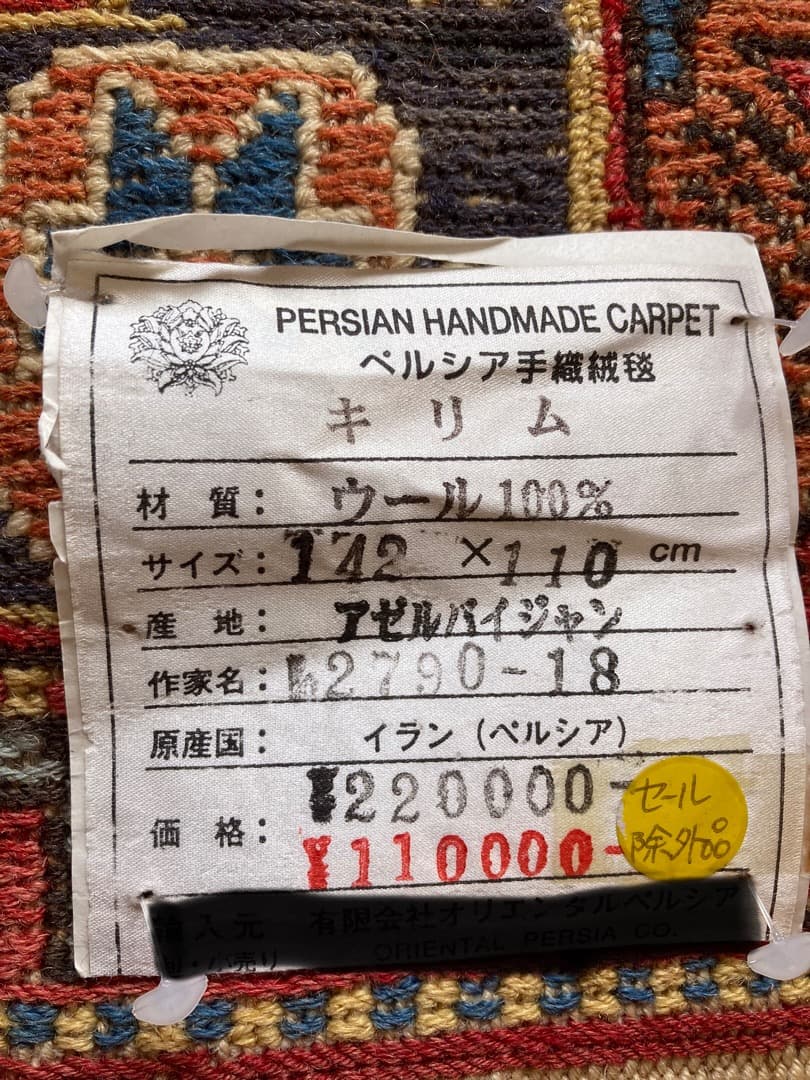 PERSIAN HANDMADE CARPET
ペルシア手織絨毯
キリム
材 質： ウール100%
サイズ： 142 × 110 cm
産 地： アゼルバイジャン
作家名： 2790-18
原産国： イラン (ペルシア)
価 格： ¥220000-
¥110000-
セール
除外品
入元 有限会社オリエンタルペルシア
ORIENTAL PERSIA CO.
・小売り